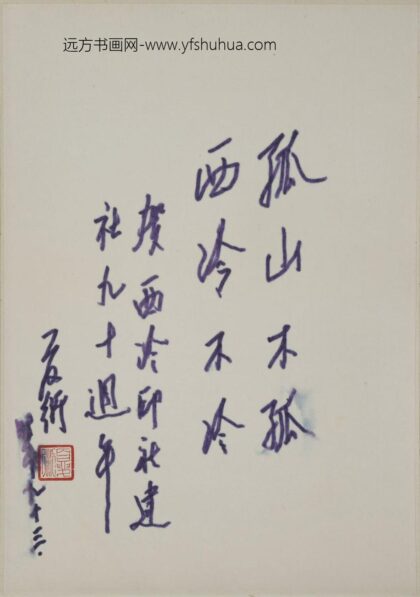 远方书画网-www.yfshuhua.com
孤山不孤
西泠不冷
贺西泠印社建
社九十週年
夏衍
九十三